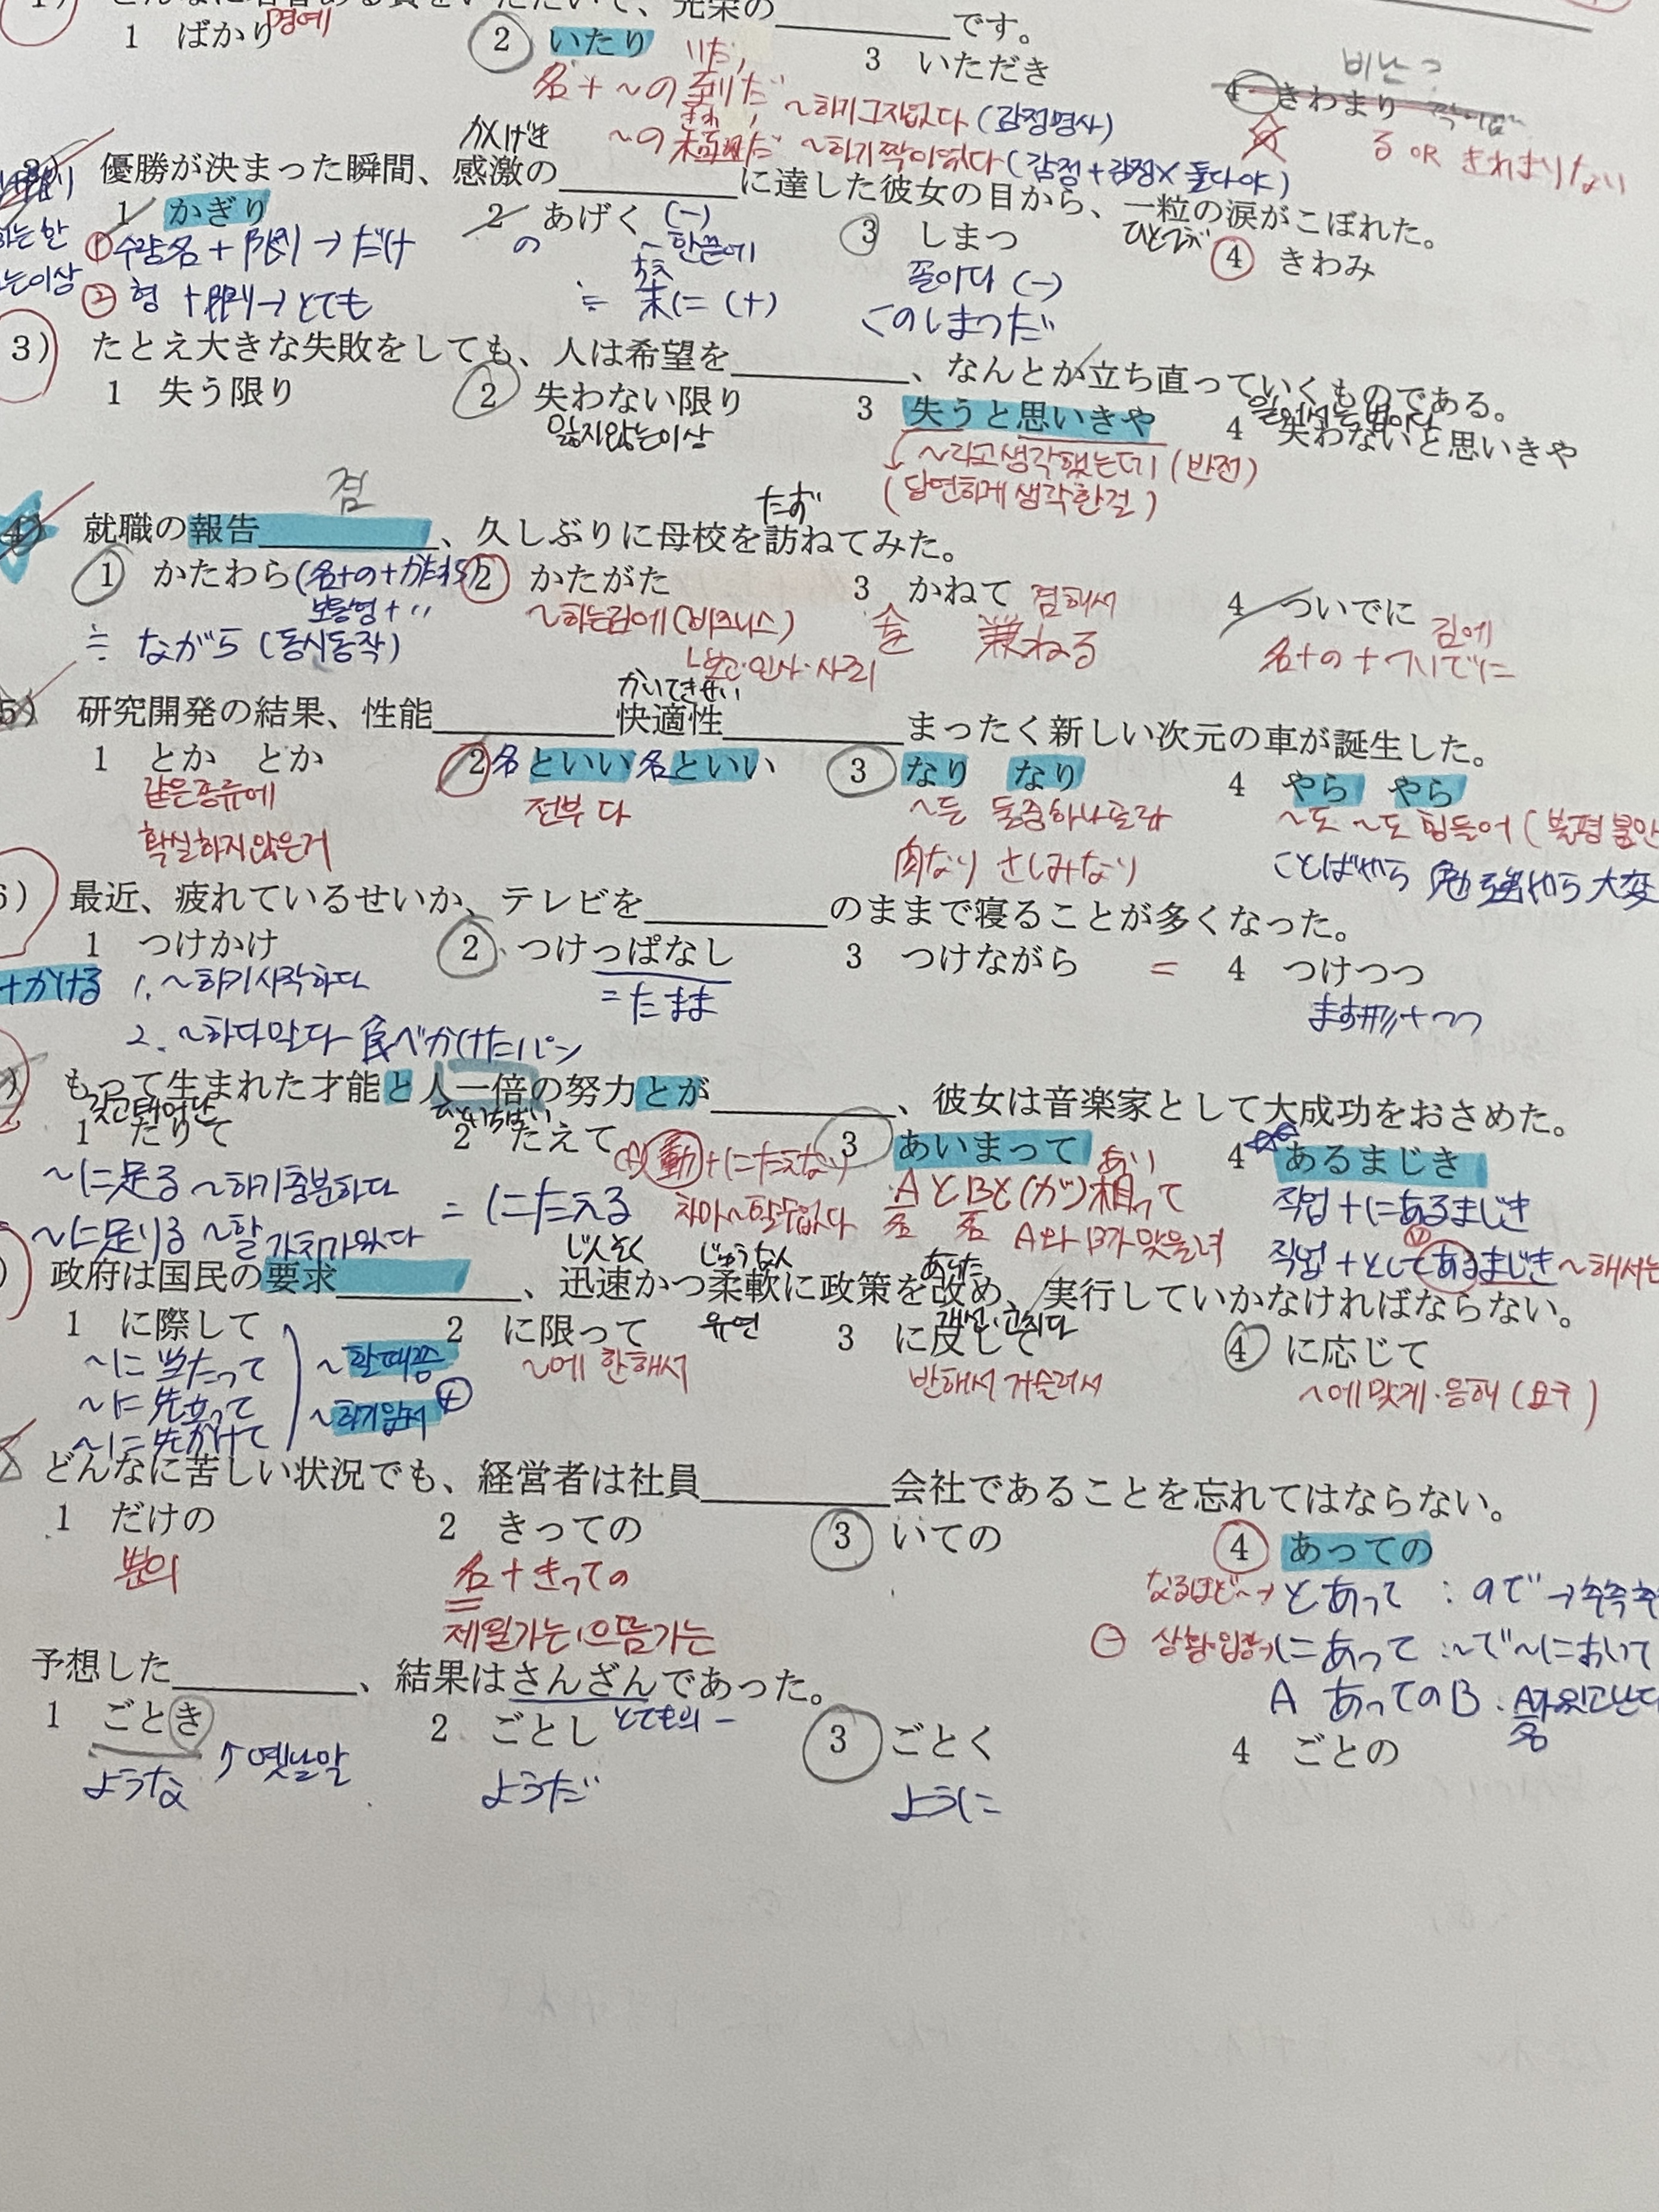 どんなに名誉ある賞をいただいて、光栄の__________です。
1 ばかり 명예 2 いたり 3 いただき 4 きわまり
비난?
名+〜の到だ 〜하기 그지없다 (감정명사)
かんげき 〜の極理だ 〜하기 짝이 없다 (감정+감정× 둘다야) る OR きわまりない
優勝が決まった瞬間、感激の__________に達した彼女の目から、一粒の涙がこぼれた。
ひとつぶ
1 かぎり 2 あげく (−) 3 しまつ 4 きわみ
① 수량名+限り→だけ の 〜한끝에 꼴이다 (−)
② 형+限り→とても ≒ 末に (+) このしまつだ
3) たとえ大きな失敗をしても、人は希望を__________、なんとか立ち直っていくものである。
1 失う限り 2 失わない限り 3 失うと思いきや 4 失わないと思いきや
잃지않는이상 〜라고생각했는데 (반전)
(당연하게 생각한걸)
겸 たず
4) 就職の報告__________、久しぶりに母校を訪ねてみた。
1 かたわら (名+の+かたわら) 2 かたがた 3 かねて 겸해서 4 ついでに 김에
보통형+〃 〜하는김에 (비즈니스) 兼ねる 名+の+ついでに
≒ ながら (동시동작)
かいてきせい
5) 研究開発の結果、性能__________快適性__________まったく新しい次元の車が誕生した。
1 とか とか 2 名といい名といい 3 なり なり 4 やら やら
같은종류에 전부 다 〜든 둘중하나골라 〜도 〜도 힘들어
확실하지않은거 肉なり さしみなり ことばやら 勉強やら 大変
6) 最近、疲れているせいか、テレビを__________のままで寝ることが多くなった。
1 つけかけ 2 つけっぱなし 3 つけながら = 4 つけつつ
+かける 1. 〜하기시작하다 =たまま ます形+つつ
2. 〜하다말다 食べかけたパン
もって生まれた才能と人一倍の努力とが__________、彼女は音楽家として大成功をおさめた。
ひといちばい
1 たりて 2 たえて 3 あいまって 4 あるまじき
〜に足る 〜하기충분하다 = にたえる AとBと(が)相って 직업+にあるまじき
〜に足りる 〜할 가치가있다 차마〜할수없다 A와 B가 맞물려 직업+としてあるまじき 〜해서는
じんそく じゅうなん あらた
政府は国民の要求__________、迅速かつ柔軟に政策を改め、実行していかなければならない。
1 に際して 2 に限って 유연 3 に反して 4 に応じて
〜に当たって 〜할때쯤 〜에 한해서 반해서 거슬러서 〜에맞게·응해 (요구)
〜に先立って 〜하기앞서
〜に先がけて
どんなに苦しい状況でも、経営者は社員__________会社であることを忘れてはならない。
1 だけの 2 きっての 3 いての 4 あっての
분의 名+きっての なるほど〜→とあって
제일가는, 으뜸가는 にあって :〜で〜において
A あってのB
予想した__________、結果はさんざんであった。
1 ごとき 2 ごとし 3 ごとく 4 ごとの
ような ↑옛날말 ようだ ように